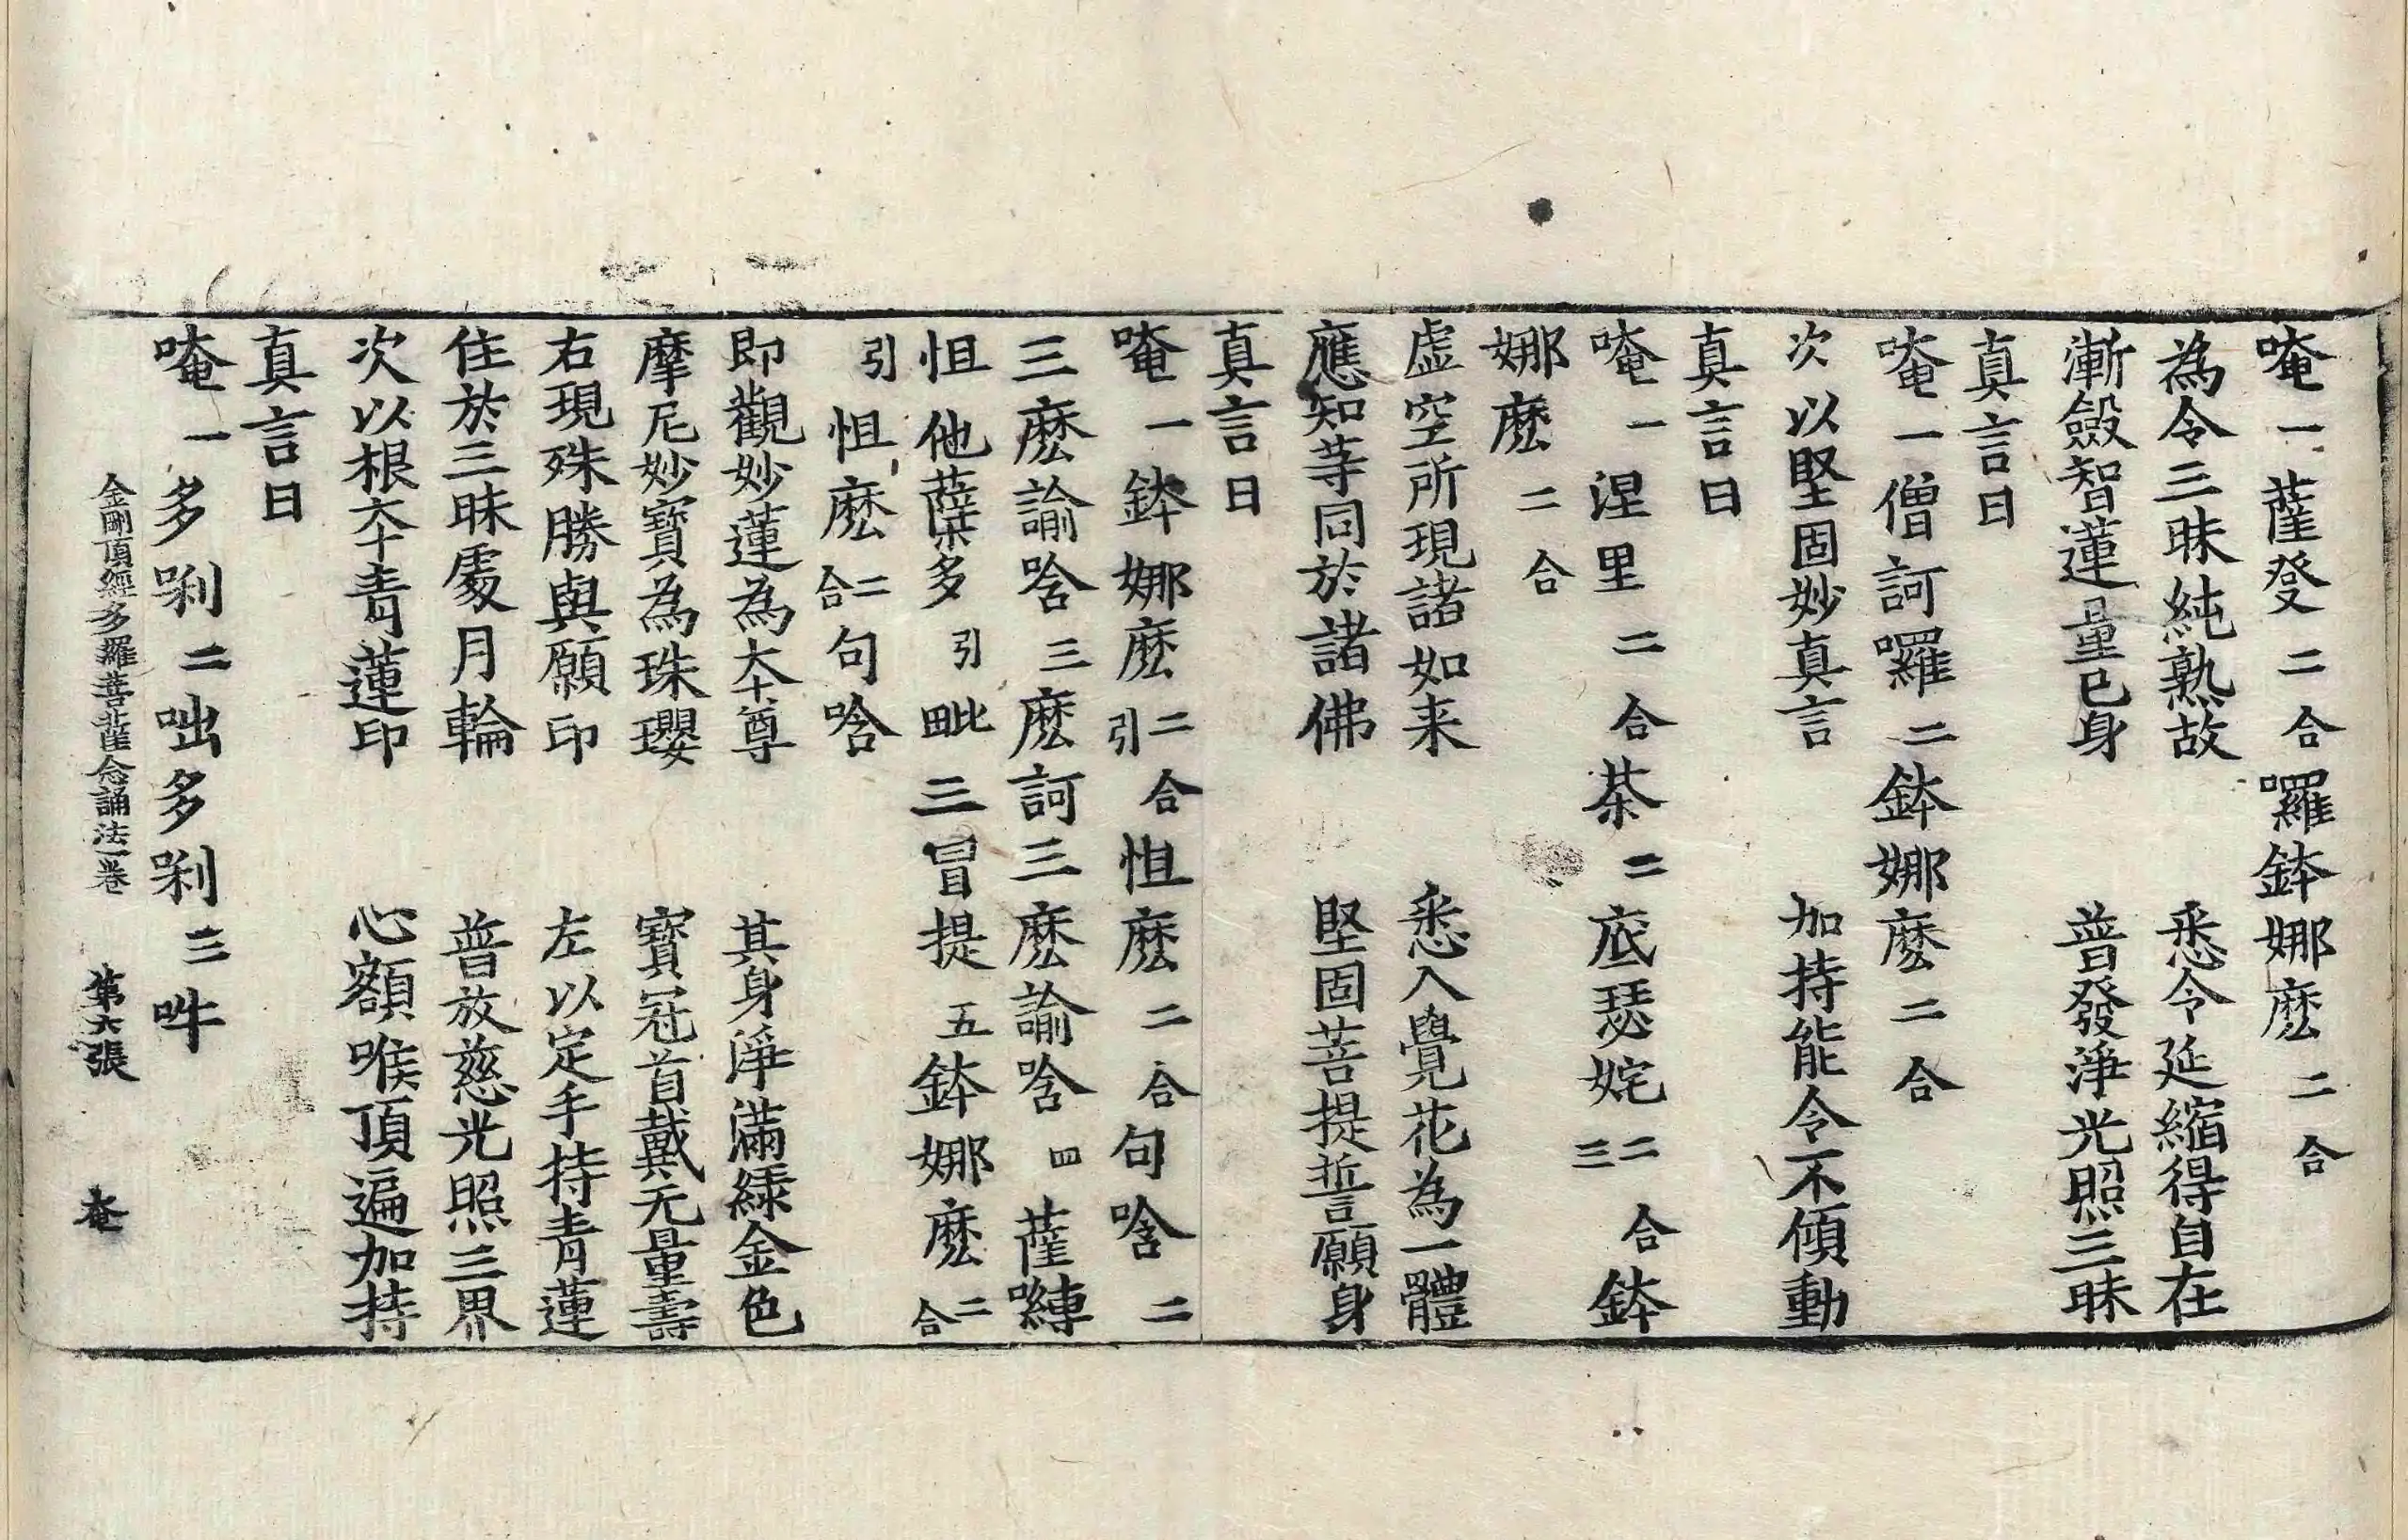 唵一薩發二合囉鉢娜麽二合
為令三昧純熟故 悉令延縮得自在
漸斂智蓮量已身 普發淨光照三昧
真言曰
唵一僧訶囉二鉢娜麽二合
次以堅固妙真言 加持能令不傾動
真言曰
唵一涅里二合茶二底瑟姹二合三鉢
娜麽二合
虛空所現諸如来 悉入覺花為一體
應知䓁同於諸佛 堅固菩提誓願身
真言曰
唵一鉢娜麽二合引怛麽二合句唅二
三麽諭唅三麽訶三麽諭唅四薩嚩
怛他蘖多引毗三冒提五鉢娜麽二合
引怛麽二合句唅
即觀妙蓮為本尊 其身淨滿綠金色
摩尼妙寶為珠瓔 寶冠首戴无量壽
右現殊勝與願印 左以定手持青蓮
住於三昧處月輪 普放慈光照三界
次以根本青蓮印 心額喉頂遍加持
真言曰
唵一多㗚二咄多㗚三吽
金剛頂經多羅菩薩念誦法一卷 第六張 奄